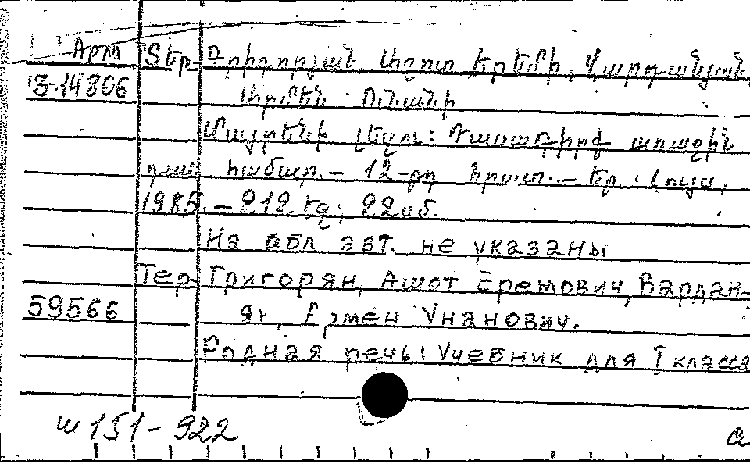 Арм Տեր-Գրիգորյան Աշոտ Երեմի, Վարդանյան
З-14806
Արմեն Ունանի
Մայրենի լեզու: Դասագիրք առաջին
դաս. համար. – 12-րդ հրատ. – Եր.: Լույս,
1985. – 212 էջ; 22 սմ.
На обл авт. не указаны
Тер-Григорян, Ашот Еремович, Вардан-
59566 ян, Армен Унанович.
Родная речь: Учебник для I класса
ш 151-922